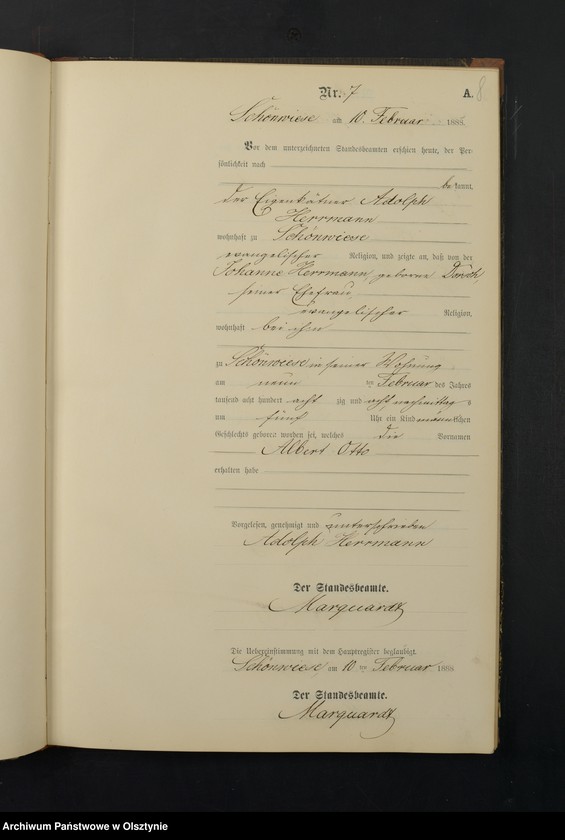 Nr. 7
A. 8
Schönwiese am 10. Februar 1888
Vor dem unterzeichneten Standesbeamten erschien heute, der Per-
sönlichkeit nach
be kannt,
der Eigenkätner Adolph
Herrmann
wohnhaft zu Schönwiese
evangelischer Religion, und zeigte an, daß von der
Johanne Herrmann, geborne
seiner Ehefrau,
evangelischer Religion,
wohnhaft bei ihm
zu Schönwiese in seiner Wohnung
am neun ten Februar des Jahres
tausend acht hundert acht zig und acht nachmittag s
um fünf Uhr ein Kind männ lichen
Geschlechts geboren worden sei, welches die Vornamen
Albert Otto
erhalten habe
Vorgelesen, genehmigt und unterschrieben
Adolph Herrmann
Der Standesbeamte.
Marquardt
Die Uebereinstimmung mit dem Hauptregister beglaubigt.
Schönwiese, am 10 ten Februar 1888
Der Standesbeamte.
Marquardt
Archiwum Państwowe w Olsztynie